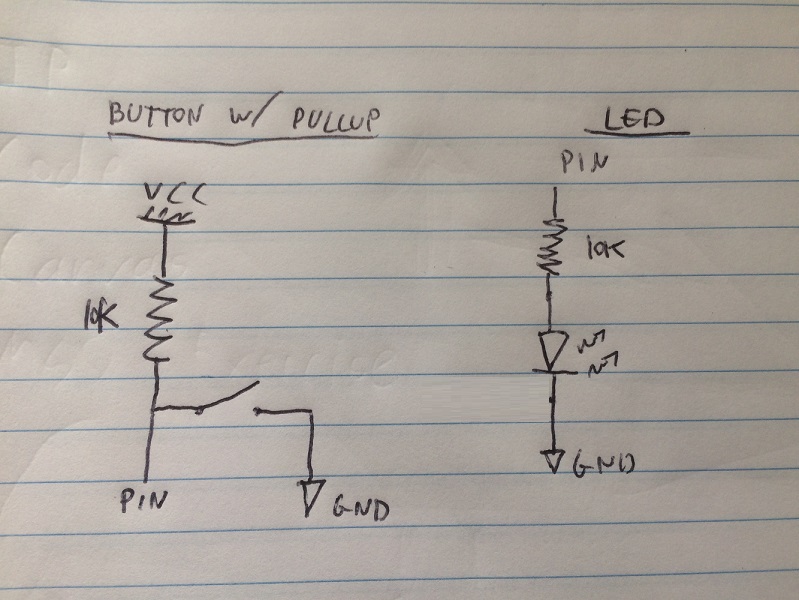 BUTTON W/ PULLUP
VCC
10K
PIN
GND
LED
PIN
10K
GND